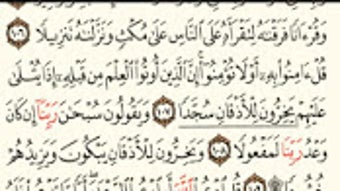 وَقُرْءَانًا فَرَقْنَٰهُ لِتَقْرَأَهُۥ عَلَى ٱلنَّاسِ عَلَىٰ مُكْثٍ وَنَزَّلْنَٰهُ تَنزِيلًا ١٠٦
قُلْ ءَامِنُوا۟ بِهِۦٓ أَوْ لَا تُؤْمِنُوٓا۟ إِنَّ ٱلَّذِينَ أُوتُوا۟ ٱلْعِلْمَ مِن قَبْلِهِۦٓ إِذَا يُتْلَىٰ
عَلَيْهِمْ يَخِرُّونَ لِلْأَذْقَانِ سُجَّدًا ١٠٧ وَيَقُولُونَ سُبْحَٰنَ رَبِّنَآ إِن كَانَ
وَعْدُ رَبِّنَا لَمَفْعُولًا ١٠٨ وَيَخِرُّونَ لِلْأَذْقَانِ يَبْكُونَ وَيَزِيدُهُمْ